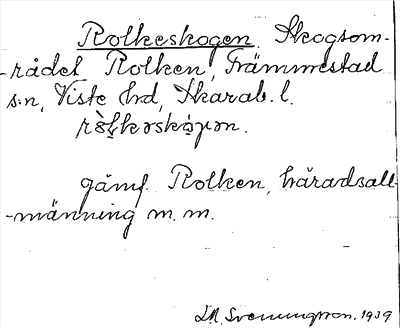 Rolkeskogen. Skogsom-
rådet Rolken, Främmestad
s:n, Viste hrd, Skarab. l.
gämf. Rolken, häradsall-
männing m. m.
Sveningsson. 1939